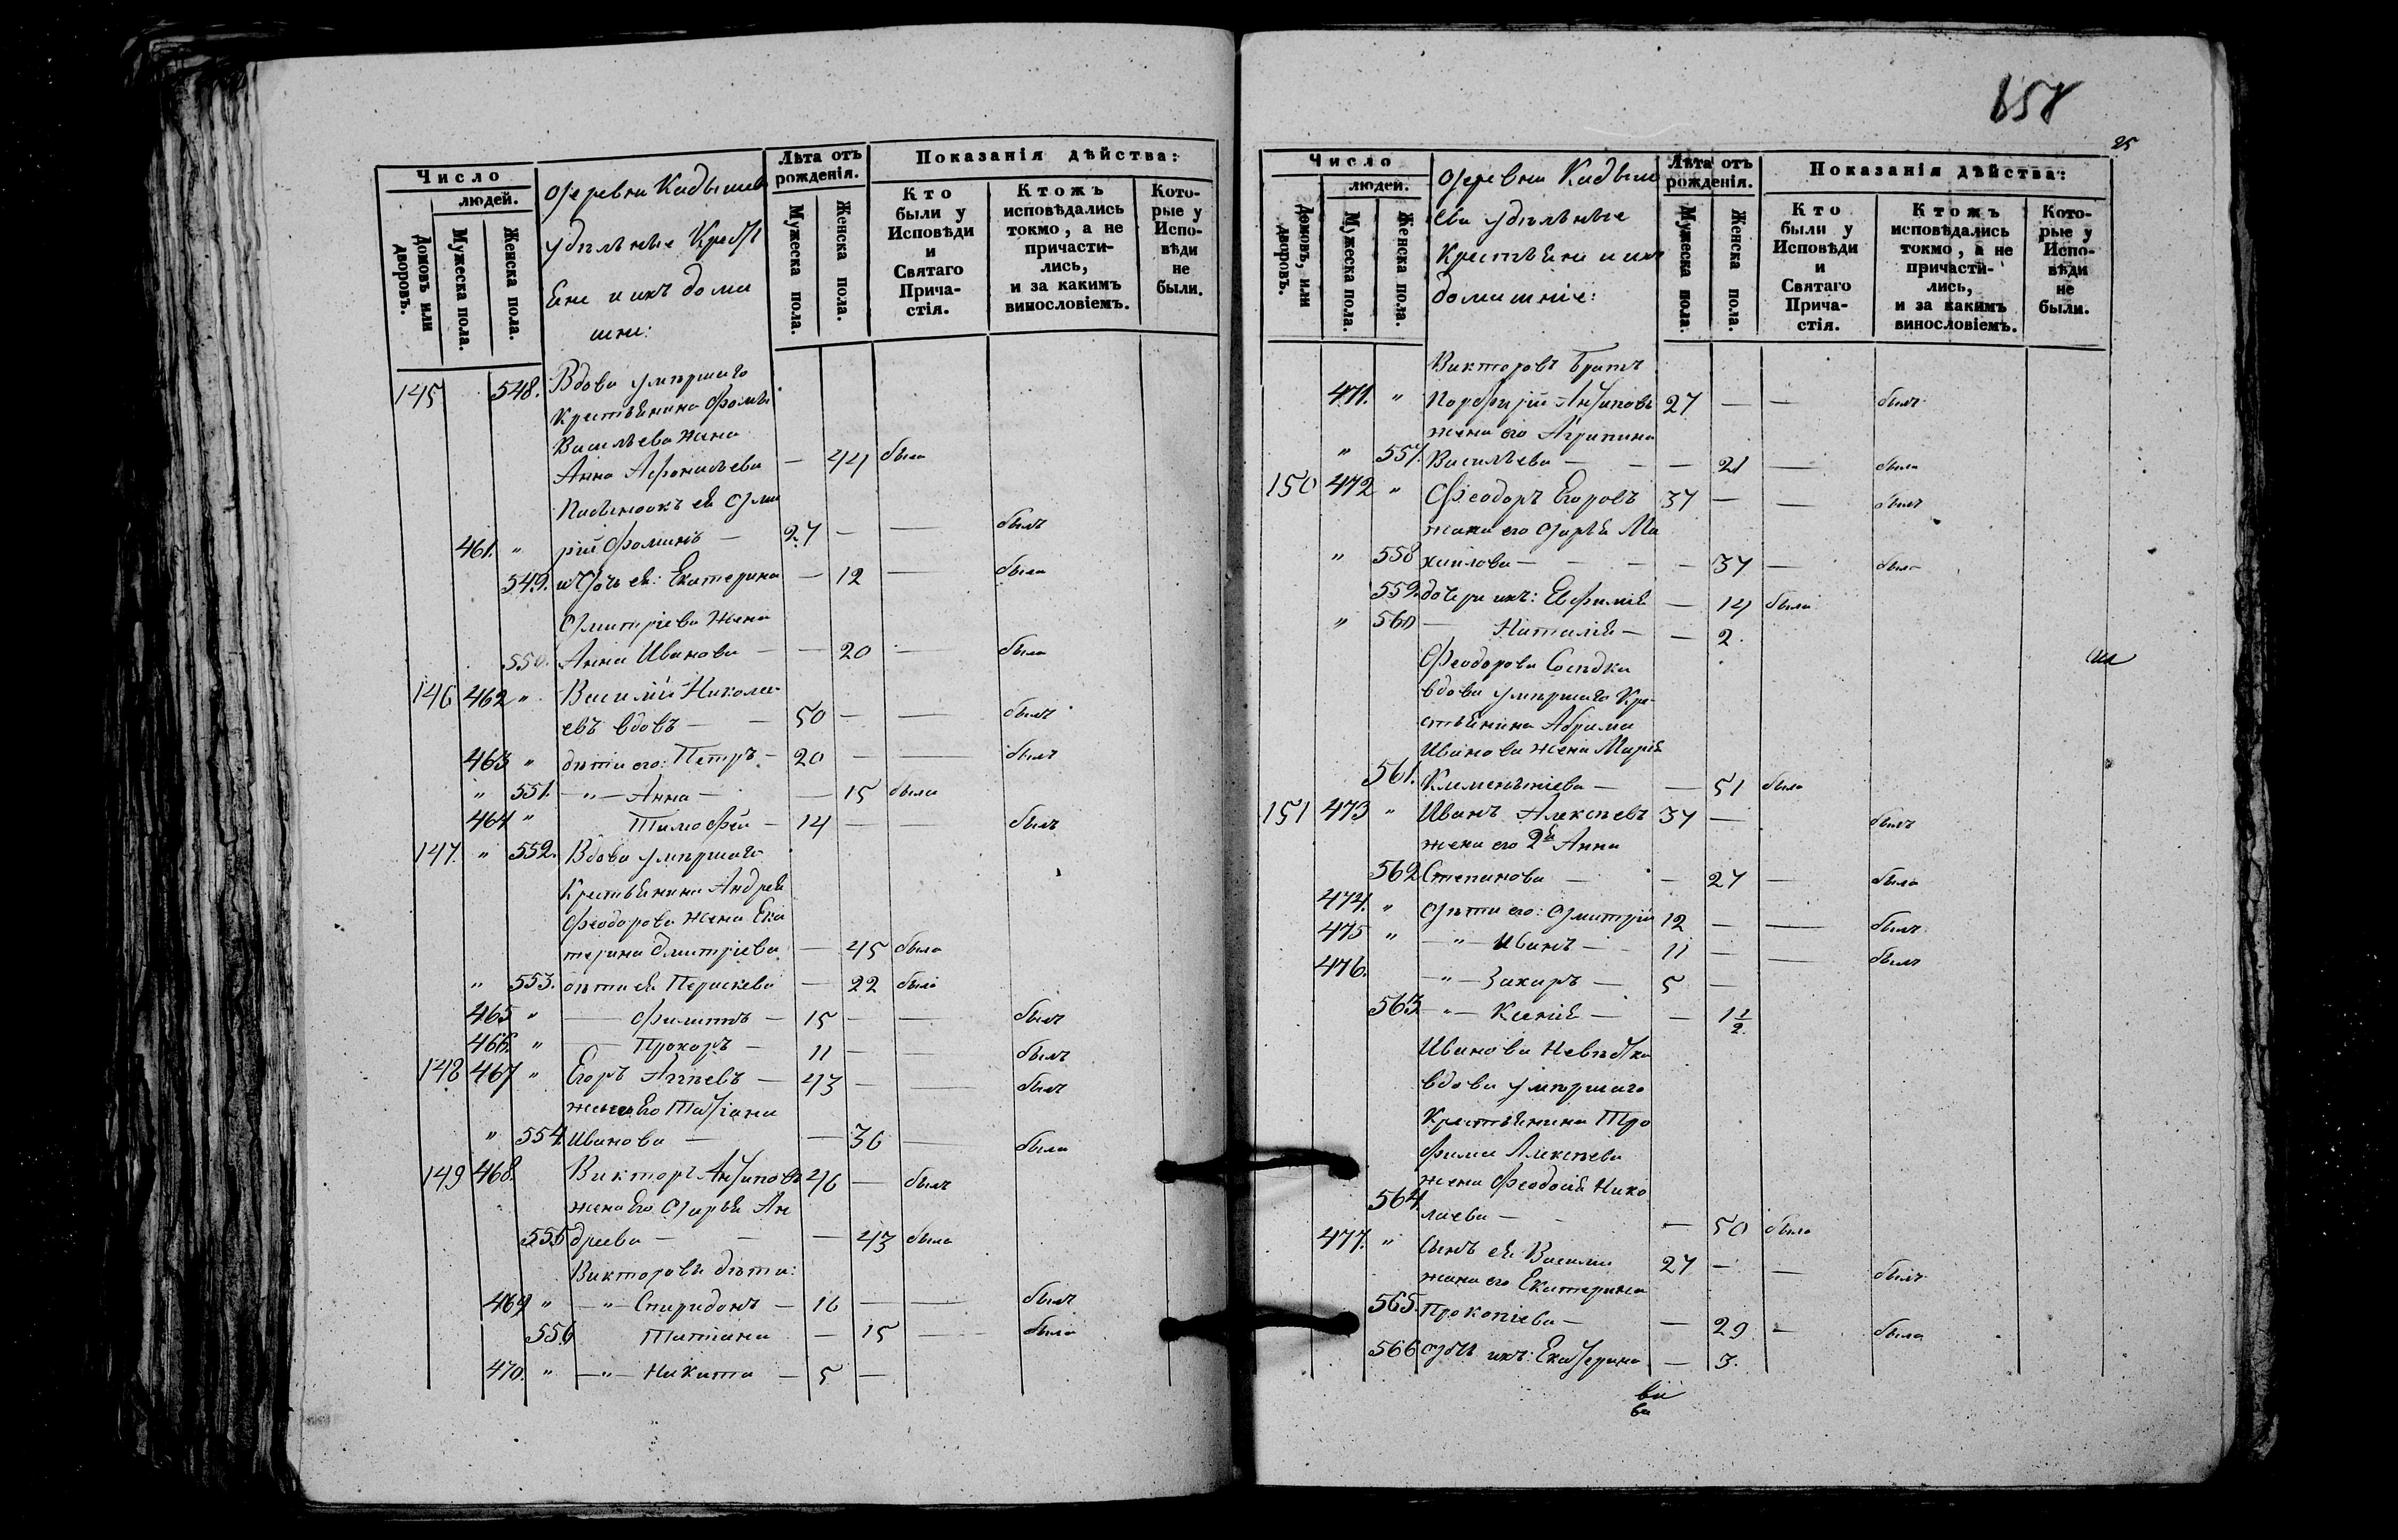 658
25
Число
людей.
Домовъ или дворовъ.
Мужеска пола.
Женска пола.
Деревни Кадышев
удѣльные Крестья
Ене и ихъ дома
шни:
Лѣта отъ рожденія.
Мужеска пола.
Женска пола.
Показанія дѣйства:
Кто были у Исповѣди и Святаго Прича-стія.
Ктожъ исповѣдались токмо, а не причасти-лись, и за какимъ винословіемъ.
Кото-рые у Испо-вѣди не были.
145 548. Вдова умершаго
Крестьянина Фомы
Васильева жена
Анна Афонасьева — 44 была
Пасынокъ ея Дми
461. " рій Фоминъ — 27 — — былъ
549. и дочь ея: Екатерина — 12 — была
Дмитріева жена
550. Анна Иванова — — 20 — была
146 462 " Василій Никола-
евъ вдовъ — — 50 — — былъ
463 " дѣти его: Петръ — 20 — — былъ
" 551. — " — Анна — — 15 была
464 " Тимофей — 14 — — былъ
147. " 552. Вдова умершаго
Крестьянина Андрея
Феодорова жена Ека
терина Дмитріева — 45 была
" 553. дѣти ея Параскева — 22 была
465 " — Филиппъ — 15 — — былъ
466. " — Прохоръ — 11 — — былъ
148 467 " Егоръ Агѣевъ — 43 — — былъ
жена Его Татіана
" 554. Иванова — — 36 — была
149 468. Викторъ Антиповъ 46 — былъ
жена Его Дарья Ан
555 дреева — — — 43 была
Викторовы дѣти:
469 " — " — Спиридонъ — 16 — — былъ
556 Татіана — 15 — была
470. " — " — Никита — 5 —
Число
людей.
Домовъ, или дворовъ.
Мужеска пола.
Женска пола.
Деревни Кадыш
ева удѣльные
Крестьяне и ихъ
домашніе:
Лѣта отъ рожденія.
Мужеска пола
Женска пола.
Показанія дѣйства:
Кто были у Исповѣди и Святаго Прича-стія.
Ктожъ исповѣдались токмо, а не причасти-лись, и за какимъ винословіемъ.
Кото-рые у Испо-вѣди не были.
Викторовъ братъ
471. " Порфирій Антиповъ 27 — — былъ
жена его Агрипина
" 557. Васильева — — — 21 — была
150 472 " Феодоръ Егоровъ 37 — — былъ
жена его Дарья Ми
" 558 хаилова — — — 37 — была
559. дочери ихъ: Евфимія — 14 была
" 560 — Наталія — — 2.
Феодорова Сосѣдка
вдова умершаго Кре-
стьянина Абрама
Иванова жена Марія
561. Климентіева — — 51 была
151 473 " Иванъ Алексѣевъ 37 — былъ
жена его 2я Анна
562 Степанова — — 27 — была
474. " Дѣти его: Дмитрій 12 — — былъ
475 " — " — Иванъ — 11 — — былъ
476. — " — Захаръ — 5 —
563 — " — Ксенія — — 1 1/2.
Иванова Невѣстка
вдова умершаго
Крестьянина Тро
фима Алексѣева
жена Феодосія Нико
564. лаева — — 50 была
477. " Сынъ ея Василій 27 — — былъ
жена его Екатерина
565. Прокопіева — — 29 — была
566 Дочь ихъ: Екатерина — 3.